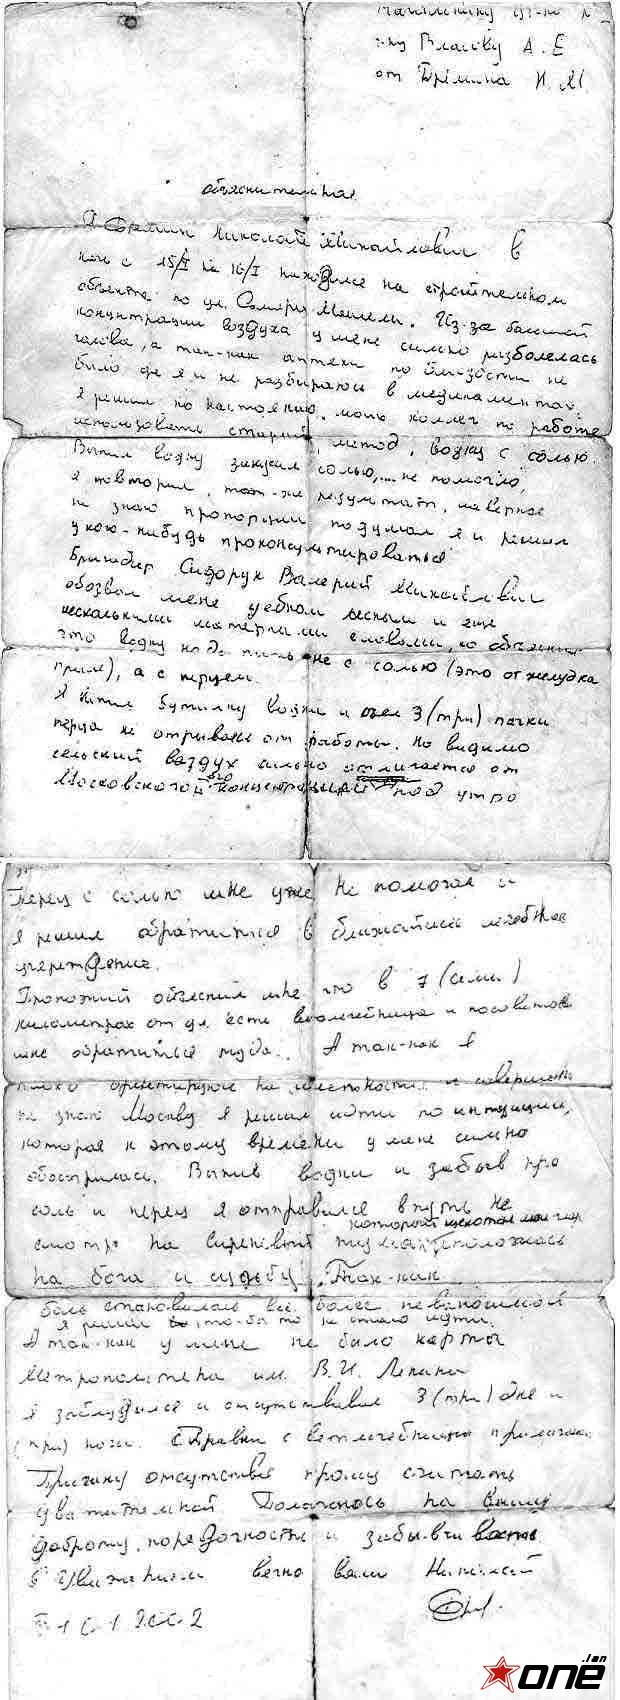 Начальнику
Власову А. Е
от Ерёмина Н. М.
объяснительная
Я Еремин Николай Михайлович в
ночь с 15/I на 16/I находился на строительном
объекте по ул. Саморы Машела. Из-за большой
концентрации воздуха у меня сильно разболелась
голова, а так-как аптеки по близости не
было да я и не разбираюсь в медикаментах,
я решил по настоянию моих коллег по работе
использовать старый, метод, водку с солью.
Выпил водку закусил солью,... не помогло,
я повторил, так-же результат, наверное
не знаю пропорции подумал я и решил
у кого-нибудь проконсультироваться
Бригадир Сидорук Валерий Михайлович
обозвал меня и ещё
несколькими матерными словами, но объяснил
что водку надо пить не с солью (это от желудка
прим), а с перцем.
Я выпил бутылку водки и съел 3 (три) пачки
перца не отрываясь от работы. Но видимо
сельский воздух сильно отличается от
Московского концентрацией под утро
Перец с солью мне уже не помогал и
я решил обратиться в ближайшее лечебное
учереждение.
Прохожий объяснил мне что в 7 (семи)
километрах от ул. есть ветлечебница и посоветовал
мне обратиться туда. А так-как я
плохо ориентируюсь на местности и совершенно
не знаю Москву я решил идти по интуиции,
которая к этому времени у меня сильно
обострилась. Выпив водки и забыв про
соль и перец я отправился в путь не
который щекотал мои
смотря на сиреневый туман положась
на бога и судьбу. Так-как
боль становилась всё более невыносимой
я решил что-бы то не стало идти.
А так-как у меня не было карты
Метрополитена им. В. И. Ленина
я заблудился и отсутствовал 3 (три) дня и
(три) ночи. Справки с ветлечебницы прилагаю.
Причину отсутствия прошу считать
уважительной Полагаюсь на вашу
доброту, порядочность и
С Уважением вечно ваш Николай
one
.lan